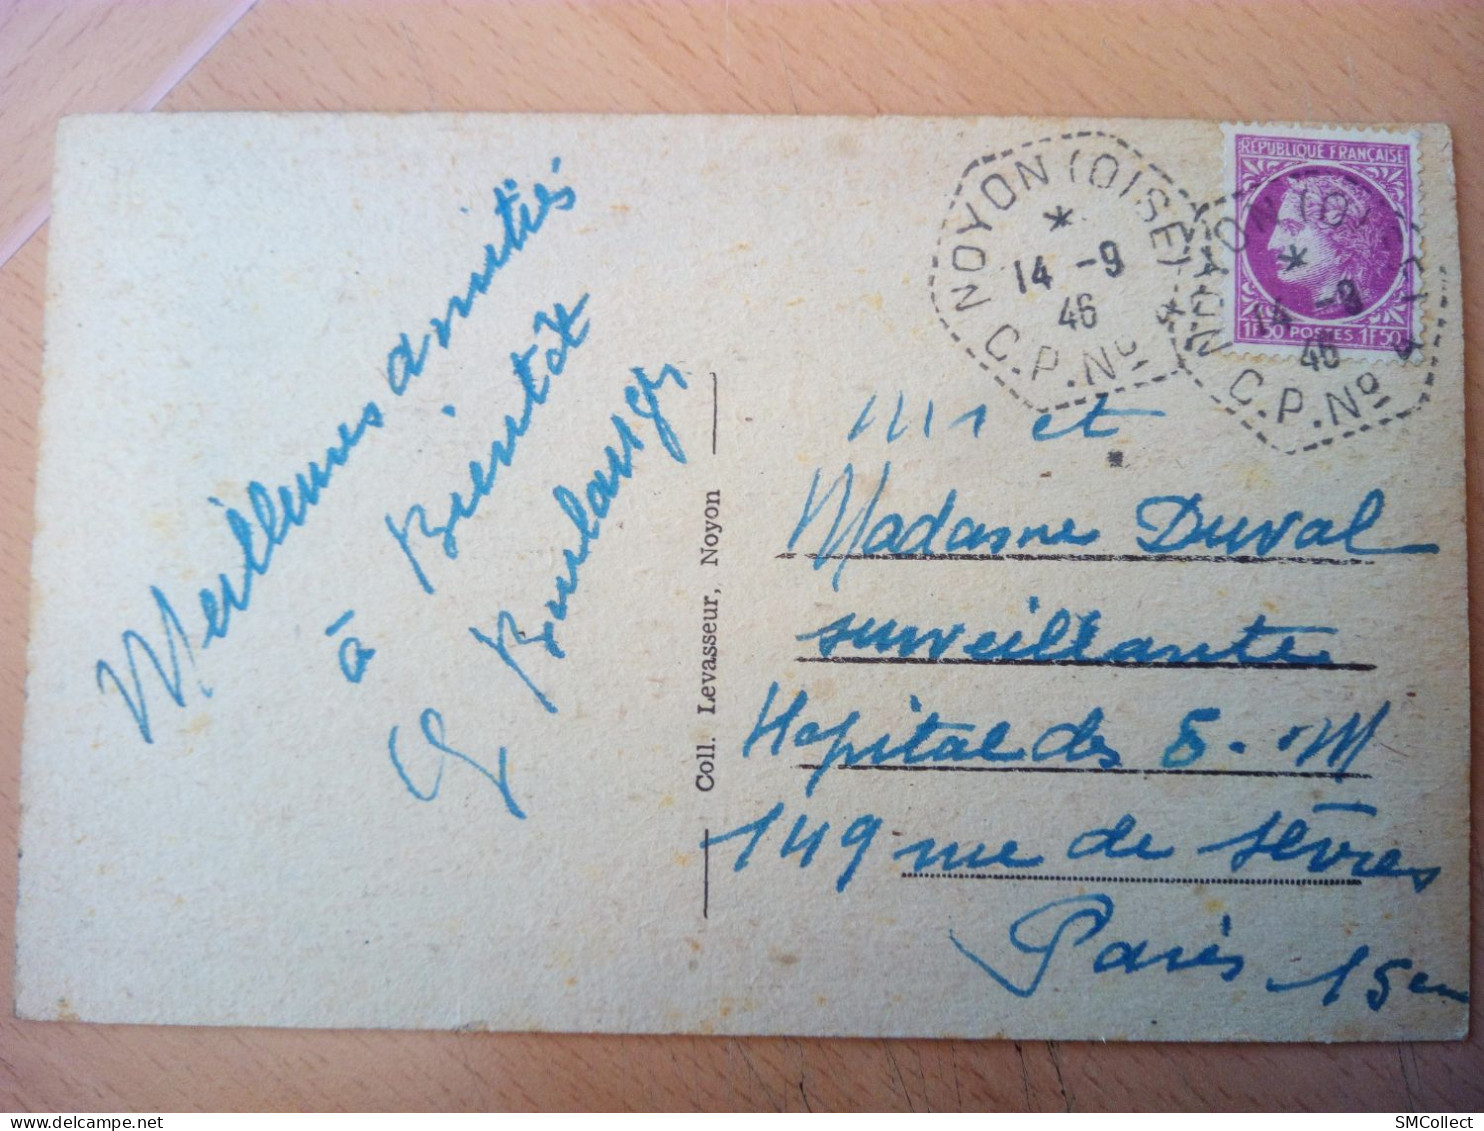 Meilleures amitiés
à Bientôt
G Boulanger
Coll. Levasseur, Noyon
NOYON (OISE)
*
14 -9
46
C.P.No 1
RÉPUBLIQUE FRANÇAISE
1F50 POSTES 1F50
NOYON (OISE)
*
14 -9
46
C.P.No 1
Mr et
Madame Duval
surveillante
Hopital des E.-M
149 rue de Sèvres
Paris 15em
SMCollect